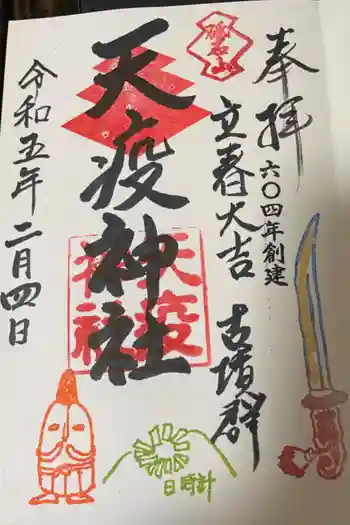 奉拝
六〇四年創建
立春大吉 古墳群
天疫神社
天疫神社
令和五年二月四日
日時計